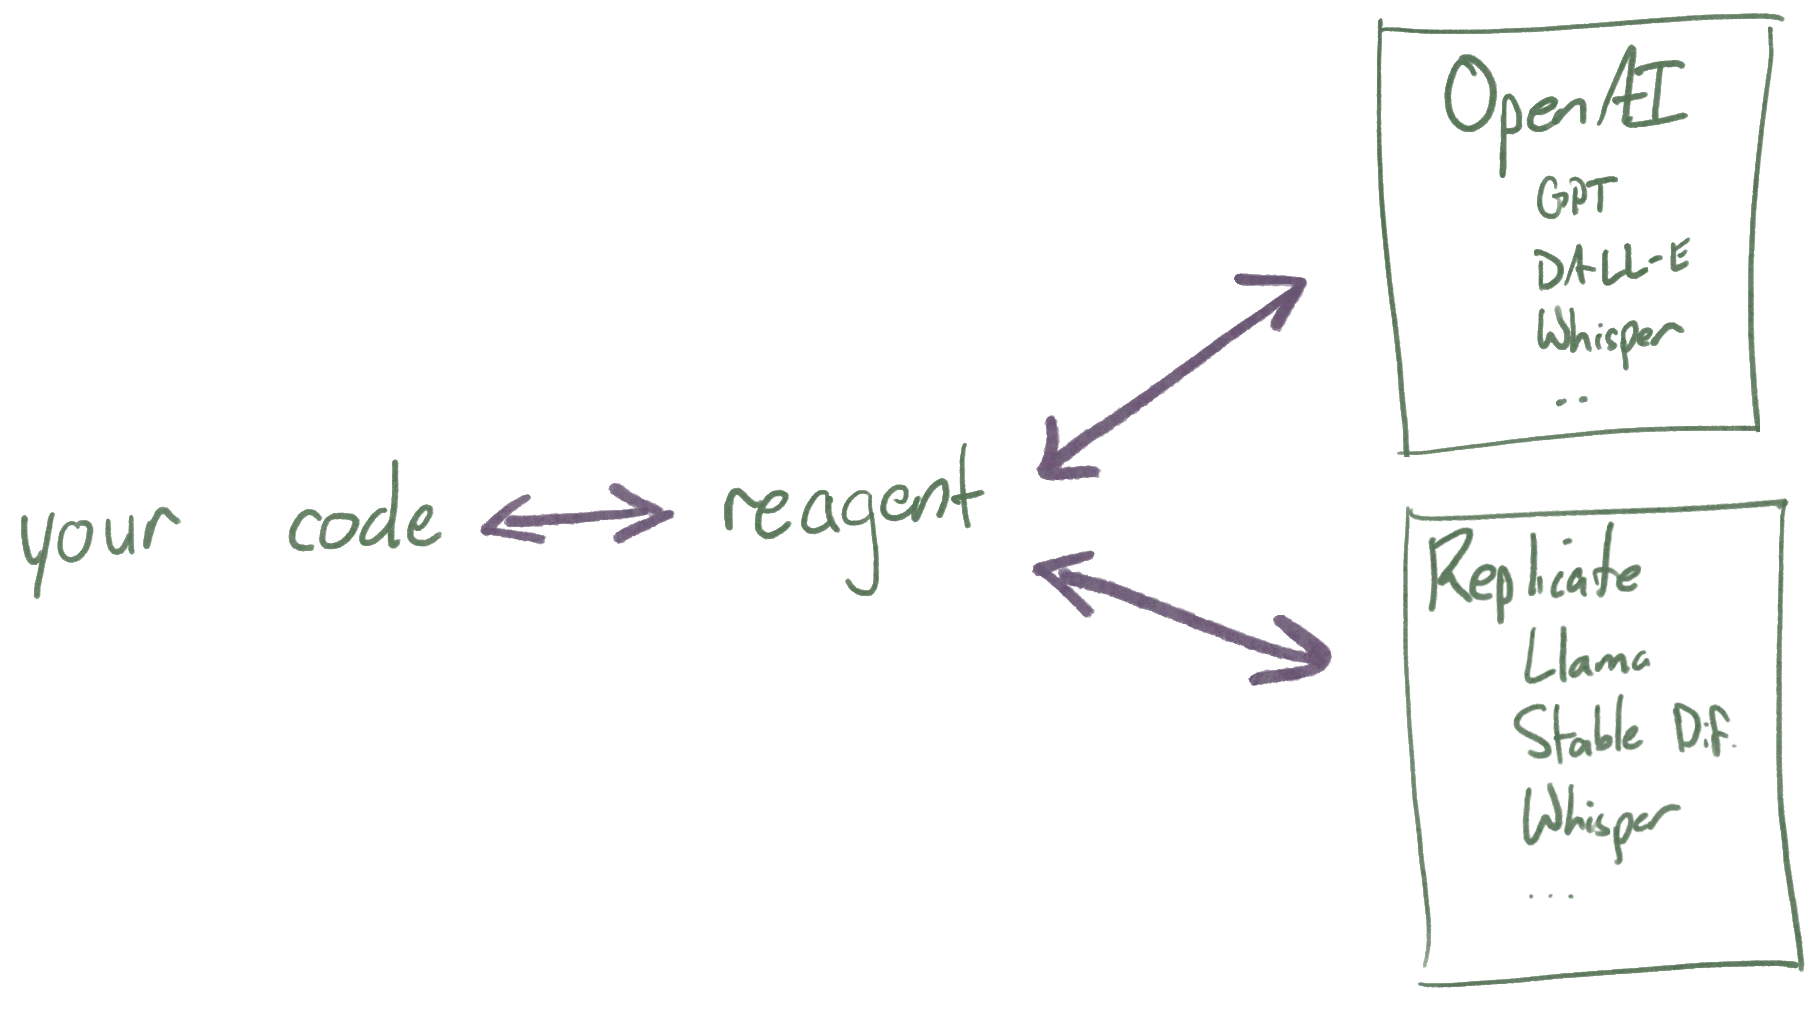 your code
reagent
OpenAI
GPT
DALL-E
Whisper
..
Replicate
Llama
Stable Dif.
Whisper
...